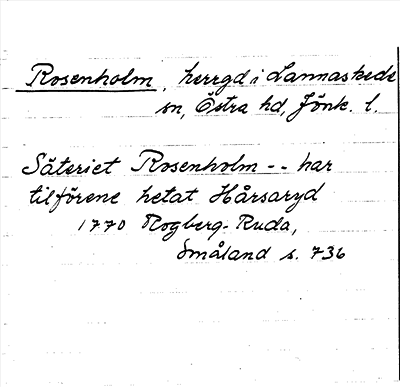 Rosenholm, herrgd i Lannaskede
sn, Östra hd, Jönk. l.
Säteriet Rosenholm -- har
tilförene hetat Hårsaryd
1770 Rogberg-Ruda,
Småland s. 736